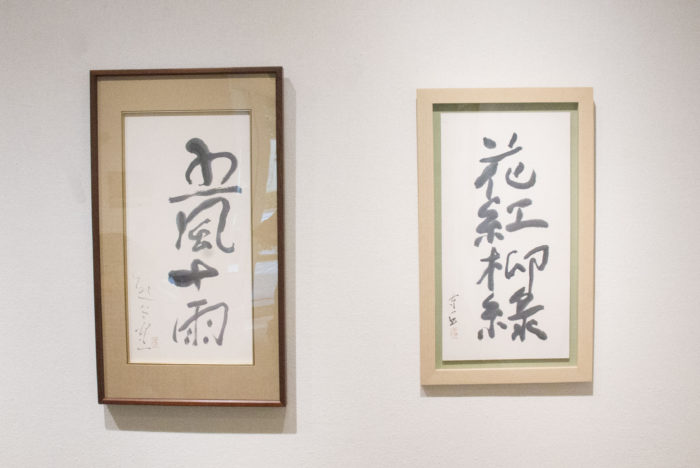 五風十雨
花紅柳緑